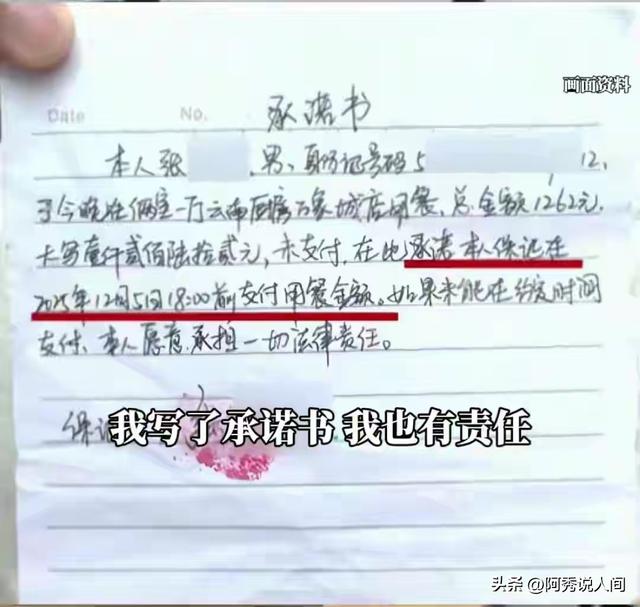 画面资料
Date No. 承诺书
本人张 男、身份证号码5 12,
于今晚在俩室一厅云南厨房万象城店用餐、总金额1262元,
大写壹仟贰佰陆拾贰元,未支付,在此承诺本人保证在
2025年12月5日18:00前支付用餐金额。如果未能在约定时间
支付、本人愿意承担一切法律责任。
保证
我写了承诺书 我也有责任
头条 @阿秀说人间